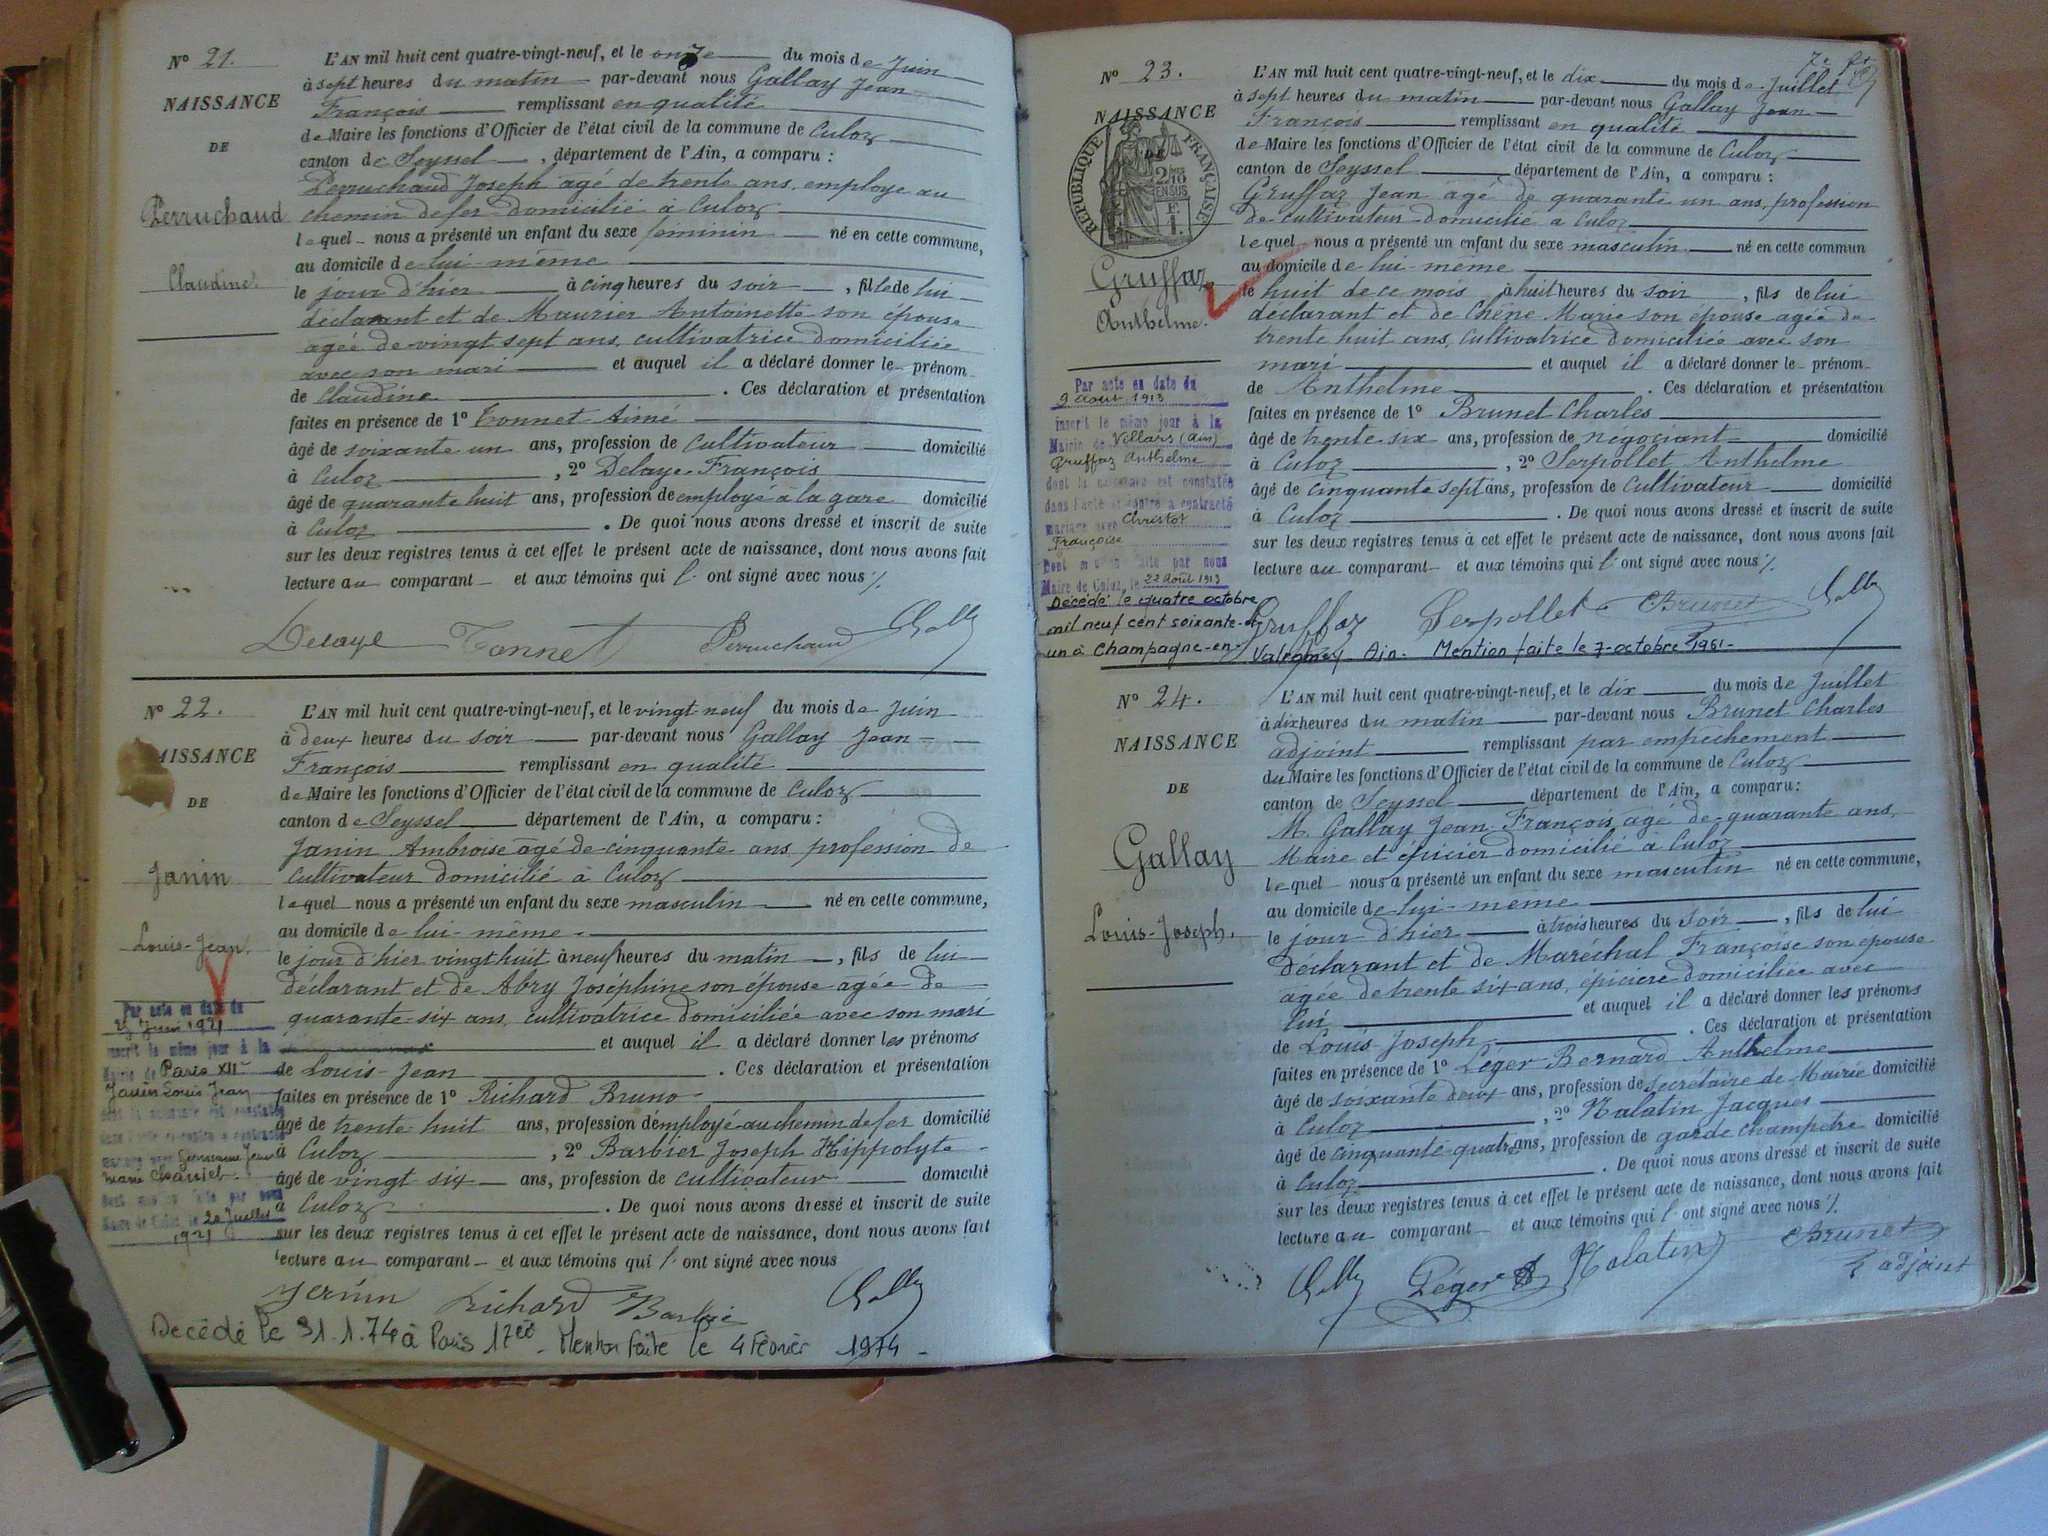 Nº 21.
NAISSANCE
DE
Perruchaud
Claudine.
L'AN mil huit cent quatre-vingt-neuf, et le onze du mois de Juin
à sept heures du matin par-devant nous Gallay Jean
François remplissant en qualité
de Maire les fonctions d'Officier de l'état civil de la commune de Culoz
canton de Seyssel, département de l'Ain, a comparu :
Perruchaud Joseph agé de trente ans, employé au
chemin de fer domicilié à Culoz
lequel nous a présenté un enfant du sexe féminin né en cette commune,
au domicile de lui-même
le jour d'hier à cinq heures du soir, fille de lui
déclarant et de Maurier Antoinette son épouse
agée de vingt sept ans, cultivatrice domiciliée
avec son mari et auquel il a déclaré donner le prénom
de Claudine. Ces déclaration et présentation
faites en présence de 1º Tonnet Aimé
âgé de soixante un ans, profession de cultivateur domicilié
à Culoz, 2º Delaye François
âgé de quarante huit ans, profession de employé à la gare domicilié
à Culoz. De quoi nous avons dressé et inscrit de suite
sur les deux registres tenus à cet effet le présent acte de naissance, dont nous avons fait
lecture au comparant et aux témoins qui l'ont signé avec nous ./.
Delaye Tonnet Perruchaud Gally
Nº 22.
NAISSANCE
DE
Janin
Louis-Jean.
Par acte en date du
25 Juin 1921
inscrit le même jour à la
Mairie de Paris XIIe
Janin Louis Jean
dont la naissance est constatée
dans l'acte ci-contre a contracté
mariage avec Germaine Jeanne
Marie
dont mention faite par nous
Maire de Culoz, le 20 Juillet
1921
L'AN mil huit cent quatre-vingt-neuf, et le vingt neuf du mois de Juin
à deux heures du soir par-devant nous Gallay Jean
François remplissant en qualité
de Maire les fonctions d'Officier de l'état civil de la commune de Culoz
canton de Seyssel département de l'Ain, a comparu :
Janin Ambroise agé de cinquante ans, profession de
cultivateur domicilié à Culoz
lequel nous a présenté un enfant du sexe masculin né en cette commune,
au domicile de lui-même
le jour d'hier vingt huit à neuf heures du matin, fils de lui
déclarant et de Abry Joséphine son épouse agée de
quarante-six ans, cultivatrice domiciliée avec son mari
et auquel il a déclaré donner les prénoms
de Louis-Jean. Ces déclaration et présentation
faites en présence de 1º Richard Bruno
âgé de trente-huit ans, profession d'employé au chemin de fer domicilié
à Culoz, 2º Barbier Joseph Hippolyte
âgé de vingt six ans, profession de cultivateur domicilié
à Culoz. De quoi nous avons dressé et inscrit de suite
sur les deux registres tenus à cet effet le présent acte de naissance, dont nous avons fait
lecture au comparant et aux témoins qui l'ont signé avec nous
Richard Barbier Gally
Décédé le 31.1.74 à Paris 17eè - Mention faite le 4 Février 1974 -
7e
Nº 23.
NAISSANCE
RÉPUBLIQUE FRANÇAISE
Gruffaz
Anthelme.
Par acte en date du
9 août 1913
inscrit le même jour à la
Mairie de Villars (Ain)
Gruffaz Anthelme
dont la naissance est constatée
dans l'acte ci-contre a contracté
mariage avec Christot
Françoise
Dont mention faite par nous
Maire de Culoz, le 22 août 1913
Décédé le quatre octobre
mil neuf cent soixante-et-
un à Champagne-en-
Valromey - Ain. Mention faite le 7 octobre 1961 -
L'AN mil huit cent quatre-vingt-neuf, et le dix du mois de Juillet
à sept heures du matin par-devant nous Gallay Jean
François remplissant en qualité
de Maire les fonctions d'Officier de l'état civil de la commune de Culoz
canton de Seyssel département de l'Ain, a comparu :
Gruffaz Jean agé de quarante un ans, profession
de cultivateur domicilié à Culoz
lequel nous a présenté un enfant du sexe masculin né en cette commun
au domicile de lui-même
le huit de ce mois à huit heures du soir, fils de lui
déclarant et de Chêne Marie son épouse agée de
trente huit ans, cultivatrice domiciliée avec son
mari et auquel il a déclaré donner le prénom
de Anthelme. Ces déclaration et présentation
faites en présence de 1º Brunet Charles
âgé de trente six ans, profession de négociant domicilié
à Culoz, 2º Serpollet Anthelme
âgé de cinquante sept ans, profession de cultivateur domicilié
à Culoz. De quoi nous avons dressé et inscrit de suite
sur les deux registres tenus à cet effet le présent acte de naissance, dont nous avons fait
lecture au comparant et aux témoins qui l'ont signé avec nous ./.
Gruffaz Serpollet Brunet Gally
Nº 24.
NAISSANCE
DE
Gallay
Louis-Joseph.
L'AN mil huit cent quatre-vingt-neuf, et le dix du mois de Juillet
à dix heures du matin par-devant nous Brunet Charles
adjoint remplissant par empêchement
du Maire les fonctions d'Officier de l'état civil de la commune de Culoz
canton de Seyssel département de l'Ain, a comparu :
M. Gallay Jean-François agé de quarante ans,
Maire et épicier domicilié à Culoz
lequel nous a présenté un enfant du sexe masculin né en cette commune,
au domicile de lui-même
le jour d'hier à trois heures du soir, fils de lui
déclarant et de Maréchal Françoise son épouse
agée de trente six ans, épicière domiciliée avec
lui, et auquel il a déclaré donner les prénoms
de Louis-Joseph. Ces déclaration et présentation
faites en présence de 1º Léger Bernard Anthelme
âgé de soixante deux ans, profession de secrétaire de Mairie domicilié
à Culoz, 2º Malatin Jacques
âgé de cinquante-quatre ans, profession de garde champêtre domicilié
à Culoz. De quoi nous avons dressé et inscrit de suite
sur les deux registres tenus à cet effet le présent acte de naissance, dont nous avons fait
lecture au comparant et aux témoins qui l'ont signé avec nous ./.
Gally Léger B Malatin Brunet
adjoint